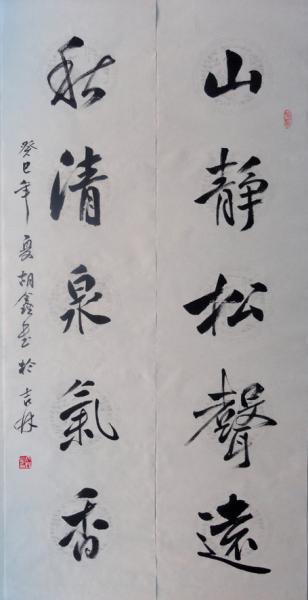 山靜松聲遠
秋清泉氣香
癸巳年夏胡鑫書於吉林